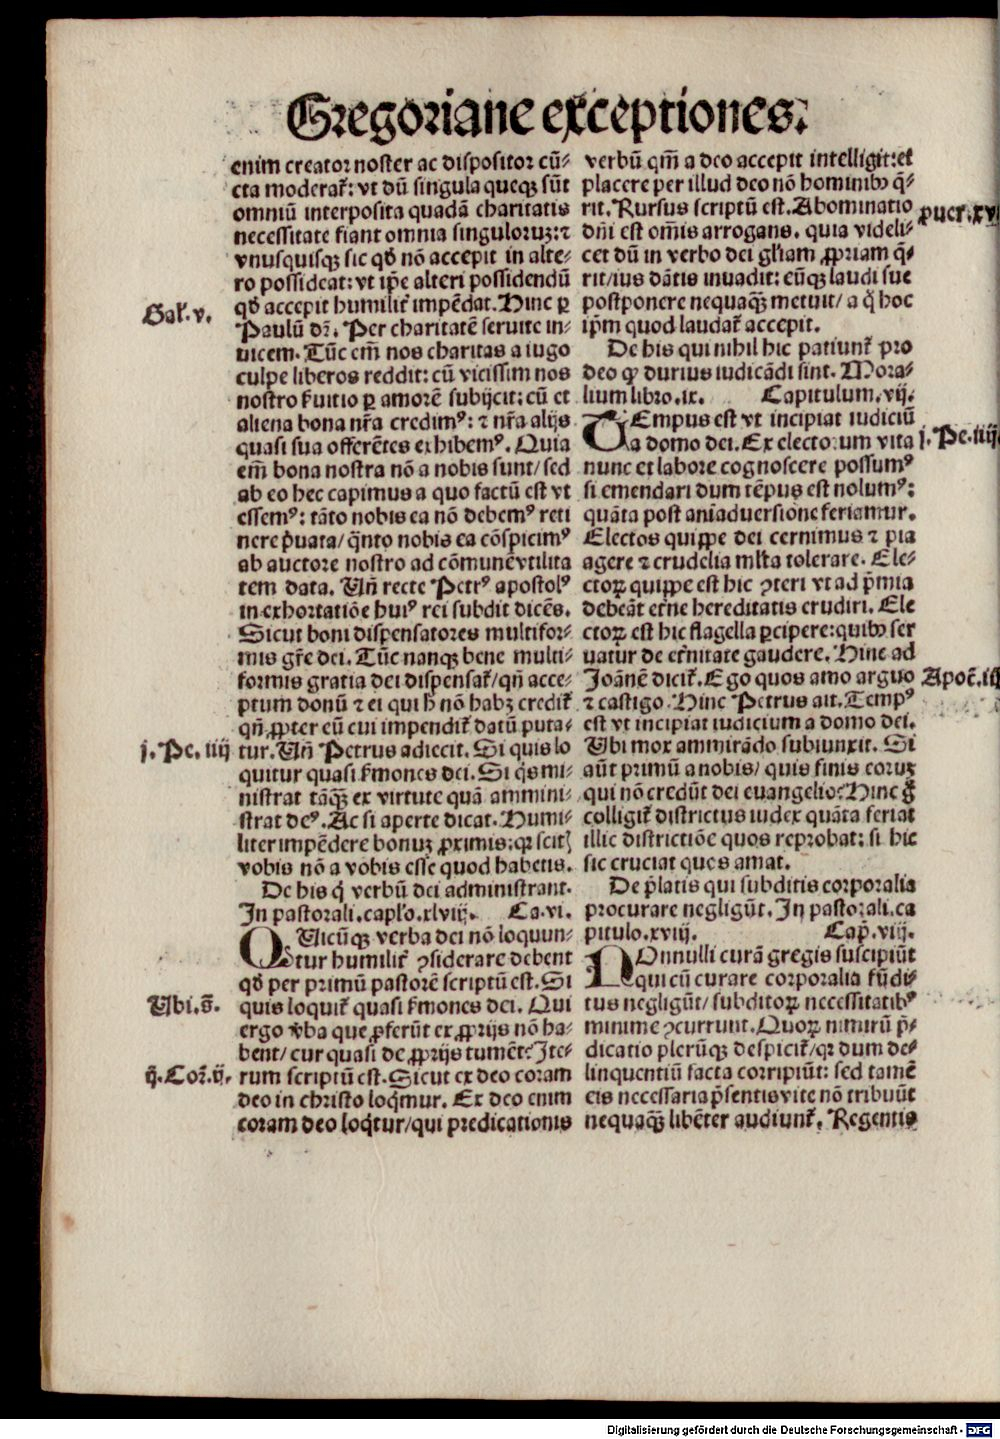 Gregoriane exceptiones.
enim creator noster ac dispositor cū-
cta moderat̄: vt dū singula queqꝫ sūt
omniū interposita quadā charitatis
necessitate fiant omnia singuloruꝫ: ⁊
vnusquisqꝫ sic qd̄ nō accepit in alte-
ro possideat: vt ip̄e alteri possidendū
qd̄ accepit humilit̄ impēdat. Hinc ꝑ
Gal̄. v.
Paulū dr̄. Per charitatē seruite in-
uicem. Tūc em̄ nos charitas a iugo
culpe liberos reddit: cū vicissim nos
nostro s̄uitio ꝑ amorē subijcit: cū et
aliena bona nr̄a credimꝰ: ⁊ nr̄a alijs
quasi sua offerētes exhibemꝰ. Quia
em̄ bona nostra nō a nobis sunt/ sed
ab eo hec capimus a quo factū est vt
essemꝰ: tāto nobis ea nō debemꝰ reti
nere p̄uata/ q̄nto nobis ea cōspicimꝰ
ab auctore nostro ad cōmunē vtilita
tem data. Vn̄ recte Petrꝰ apostolꝰ
in exhortatiōe huiꝰ rei subdit dicēs.
Sicut boni dispensatores multifor-
mis gr̄e dei. Tūc nanqꝫ bene multi-
formis gratia dei dispensat̄/ qn̄ acce-
ptum donū ⁊ ei qui h̄ nō habꝫ credit̄
qn̄ ꝓpter eū cui impendit̄ datū puta-
j. Pe. iiij
tur. Vn̄ Petrus adiecit. Si quis lo
quitur quasi s̄mones dei. Si q̄s mi-
nistrat tāqꝫ̄ ex virtute quā ammini-
strat deꝰ. Ac si aperte dicat. Humi-
liter impēdere bonuꝫ ꝓximis: qꝛ scitꝭ
vobis nō a vobis esse quod habetis.
De his q̄ verbū dei administrant.
In pastorali. capl'o. xlviij. Ca. vi.
QUicūqꝫ verba dei nō loquun-
tur humilit̄ ꝯsiderare debent
qd̄ per primū pastorē scriptū est. Si
Vbi. s̄.
quis loquit̄ quasi s̄mones dei. Qui
ergo v̄ba que ꝓferūt ex ꝓprijs nō ha-
bent/ cur quasi de ꝓprijs tumēt? Ite-
ij. Cor̄. ij.
rum scriptū est. Sicut ex deo coram
deo in christo loq̄mur. Ex deo enim
coram deo loq̄tur/ qui predicationis
verbū qm̄ a deo accepit intelligit: et
placere per illud deo nō hominibꝰ q̄-
rit. Rursus scriptū est. Abominatio
puer. xvi
dn̄i est om̄is arrogans. quia videli-
cet dū in verbo dei gl'iam ꝓpriam q̄-
rit/ ius dātis inuadit: eūqꝫ laudi sue
postponere nequaqꝫ̄ metuit/ a q̄ hoc
ip̄m quod laudat̄ accepit.
De his qui nihil hic patiunt̄ pro
deo ꝙ durius iudicādi sint. Mora-
lium libro. ix. Capitulum. vij.
TEmpus est vt incipiat iudiciū
a domo dei. Ex electorum vita
j. Pe. iiij.
nunc et labore cognoscere possumꝰ
si emendari dum tēpus est nolumꝰ:
quāta post aīaduersione feriamur.
Electos quippe dei cernimus ⁊ pia
agere ⁊ crudelia ml'ta tolerare. Ele-
ctoꝝ quippe est hic ꝯteri vt ad p̄mia
debeāt et̄ne hereditatis erudiri. Ele
ctoꝝ est hic flagella ꝑcipere: quibꝰ ser
uatur de et̄nitate gaudere. Hinc ad
Joānē dicit̄. Ego quos amo arguo
Apoc̄. iij
⁊ castigo. Hinc Petrus ait. Tempꝰ
est vt incipiat iudicium a domo dei.
Vbi mox ammirādo subiunxit. Si
aūt primū a nobis/ quis finis eoruꝫ
qui nō credūt dei euangelio? Hinc g̊
colligit̄ districtus iudex quāta feriat
illic districtiōe quos reprobat: si hic
sic cruciat ques amat.
De p̄latis qui subditis corporalia
procurare negligūt. In pastorali. ca
pitulo. xviij. Cap̄. viij.
NOnnulli curā gregis suscipiūt
qui cū curare corporalia s̄udi-
tus negligūt/ subditoꝝ necessitatibꝰ
minime ꝯcurrunt. Quoꝝ nimirū p̄-
dicatio plerūqꝫ despicit̄/ qꝛ dum de-
linquentiū facta corripiūt: sed tamē
eis necessaria p̄sentis vite nō tribuūt
nequaqꝫ̄ libēter audiunt̄. Regentis
Digitalisierung gefördert durch die Deutsche Forschungsgemeinschaft - DFG